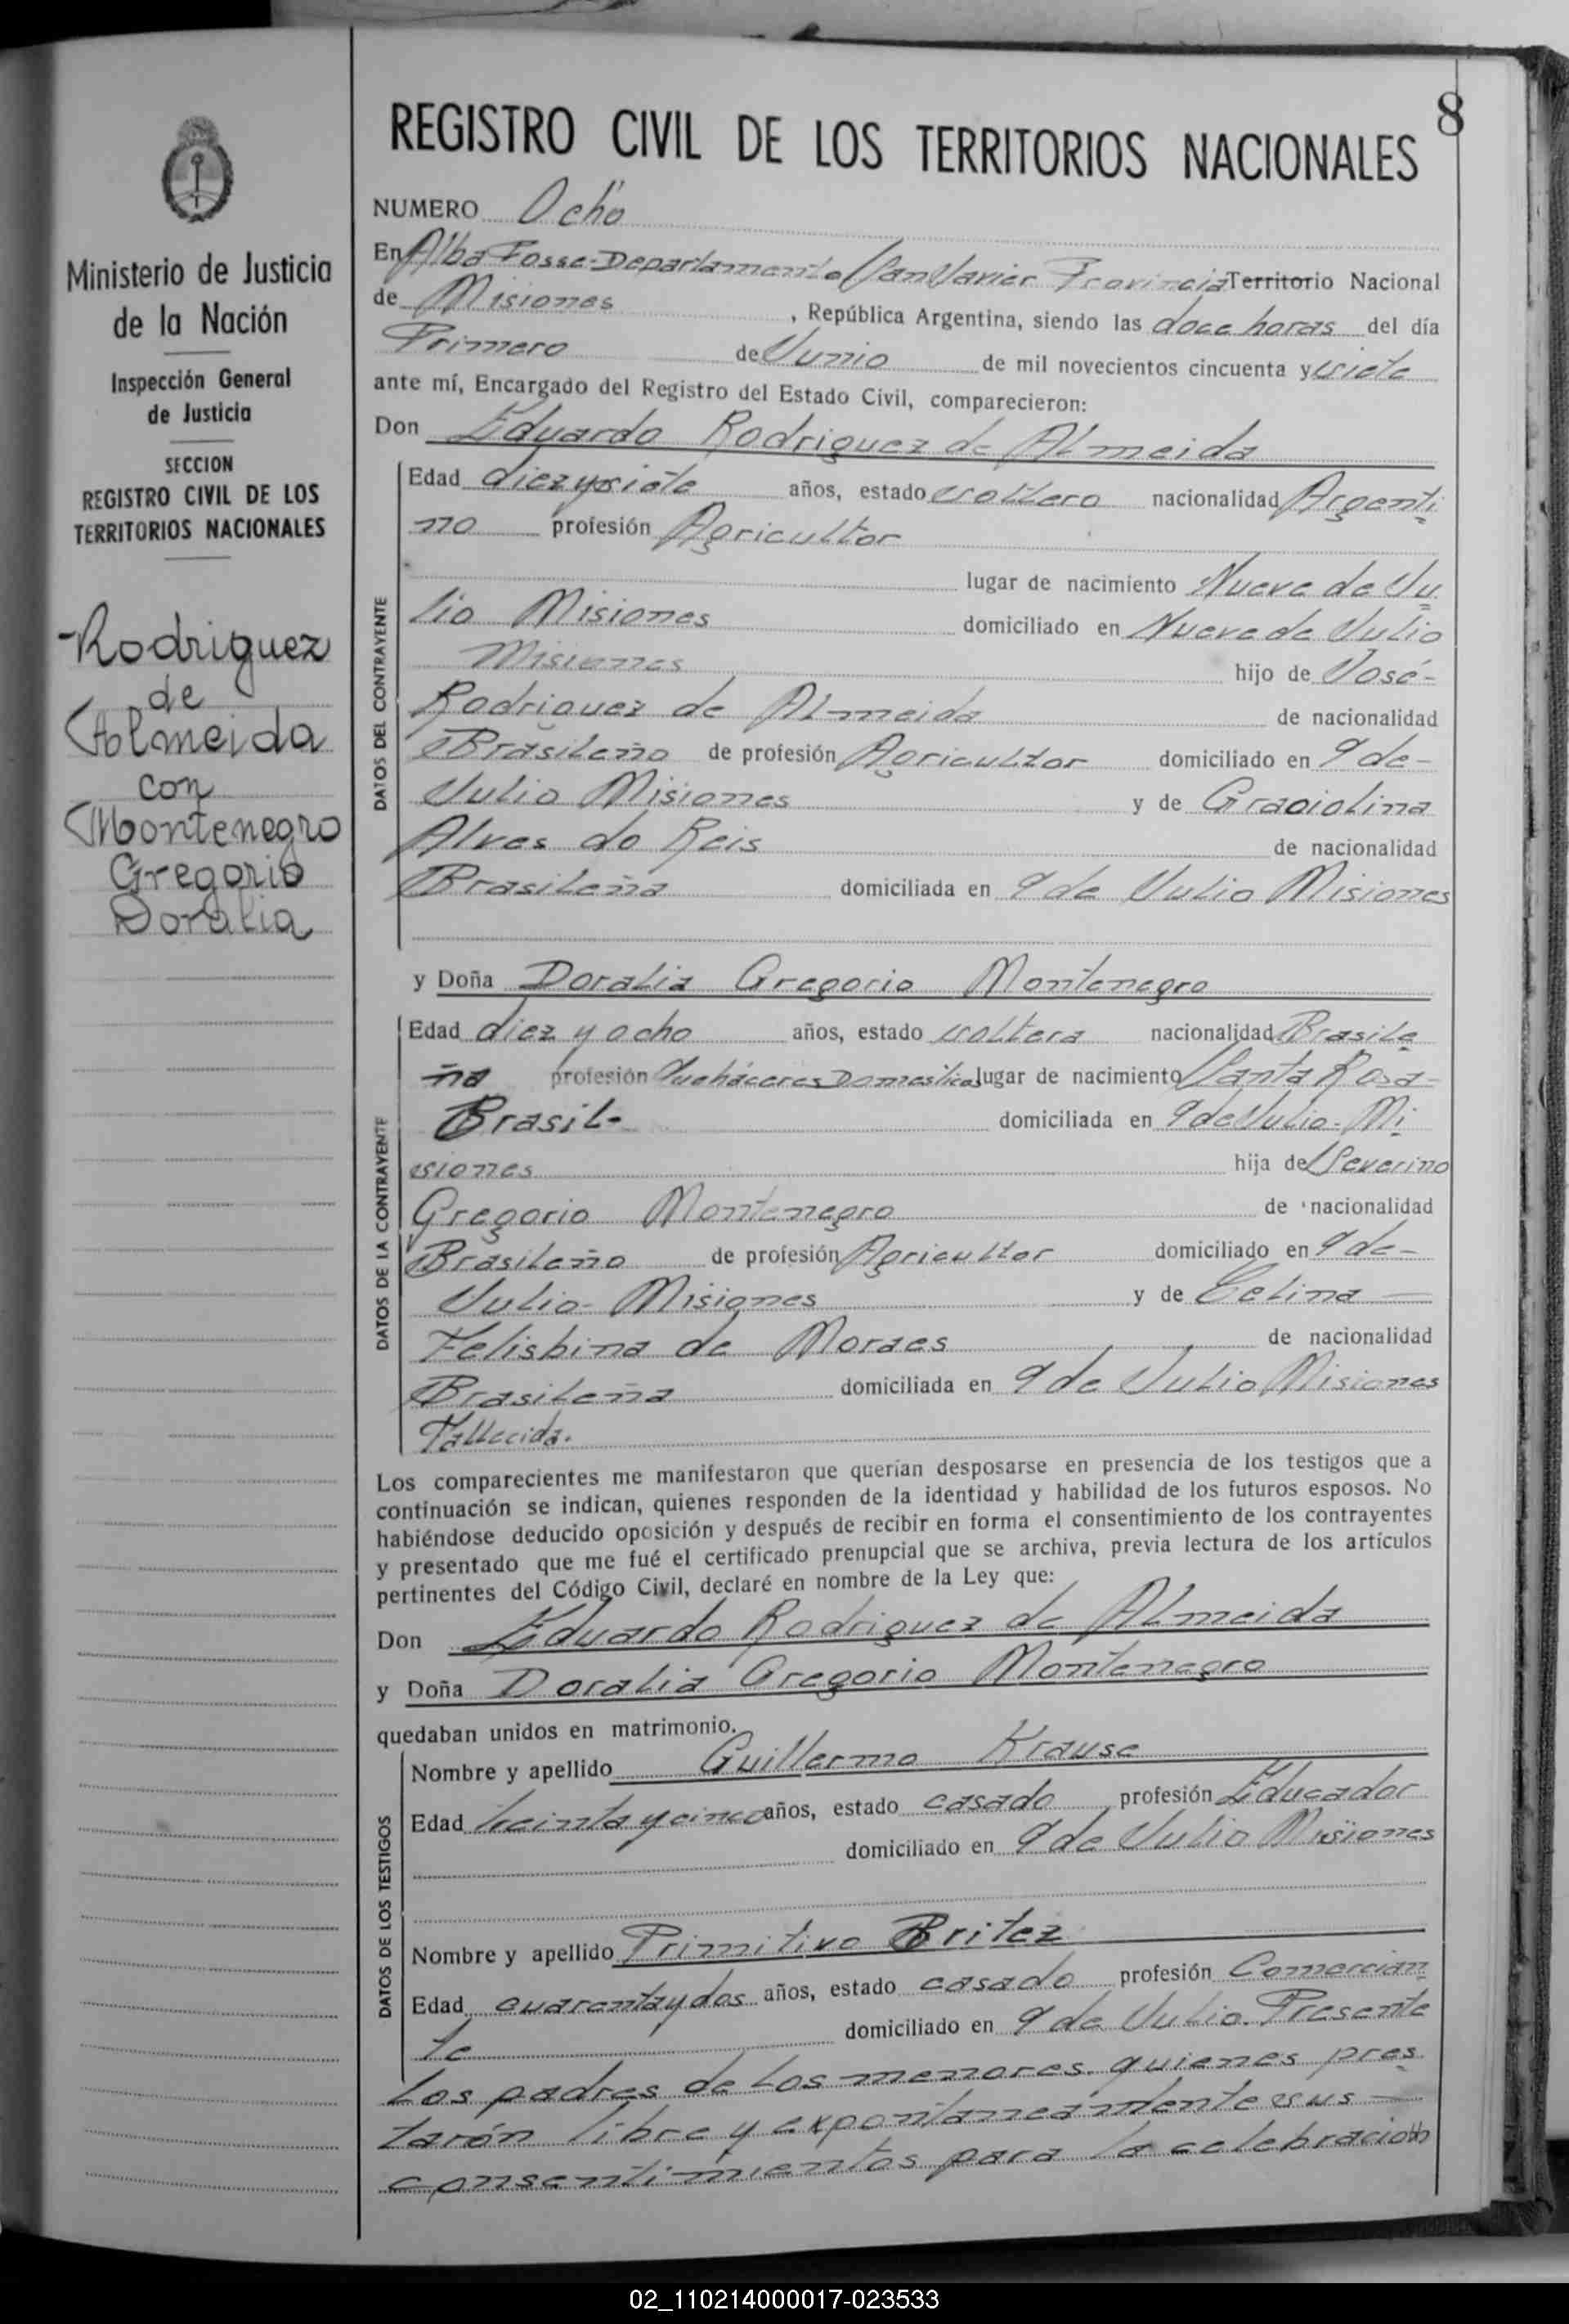 8
REGISTRO CIVIL DE LOS TERRITORIOS NACIONALES
Ministerio de Justicia
de la Nación
Inspección General
de Justicia
SECCION
REGISTRO CIVIL DE LOS
TERRITORIOS NACIONALES
Rodriguez
de
Almeida
con
Montenegro
Gregorio
Doralia
NUMERO Ocho
En Alba Posse-Departamento San Javier Provincia Territorio Nacional
de Misiones, República Argentina, siendo las doce horas del día
Primero de Junio de mil novecientos cincuenta y siete
ante mí, Encargado del Registro del Estado Civil, comparecieron:
Don Eduardo Rodriguez de Almeida
DATOS DEL CONTRAYENTE
Edad diez y siete años, estado soltero nacionalidad Argenti
no profesión Agricultor
lugar de nacimiento Nueve de Ju
lio Misiones domiciliado en Nueve de Julio
Misiones hijo de José-
Rodriguez de Almeida de nacionalidad
Brasileño de profesión Agricultor domiciliado en 9 de-
Julio Misiones y de Graciolina
Alves do Reis de nacionalidad
Brasileña domiciliada en 9 de Julio Misiones
y Doña Doralia Gregorio Montenegro
DATOS DE LA CONTRAYENTE
Edad diez y ocho años, estado soltera nacionalidad Brasile
ña profesión Quehaceres Domesticos lugar de nacimiento Santa Rosa-
Brasil- domiciliada en 9 de Julio- Mi
siones hija de Severino
Gregorio Montenegro de nacionalidad
Brasileño de profesión Agricultor domiciliado en 9 de-
Julio- Misiones y de Celina —
Felisbina de Moraes de nacionalidad
Brasileña domiciliada en 9 de Julio Misiones
Fallecida.
Los comparecientes me manifestaron que querían desposarse en presencia de los testigos que a
continuación se indican, quienes responden de la identidad y habilidad de los futuros esposos. No
habiéndose deducido oposición y después de recibir en forma el consentimiento de los contrayentes
y presentado que me fué el certificado prenupcial que se archiva, previa lectura de los artículos
pertinentes del Código Civil, declaré en nombre de la Ley que:
Don Eduardo Rodriguez de Almeida
y Doña Doralia Gregorio Montenegro
quedaban unidos en matrimonio.
DATOS DE LOS TESTIGOS
Nombre y apellido Guillermo Krause
Edad treinta y cinco años, estado casado profesión Educador
domiciliado en 9 de Julio Misiones
Nombre y apellido Primitivo Britez
Edad cuarenta y dos años, estado casado profesión Comercian
te domiciliado en 9 de Julio. Presente
los padres de los menores quienes pres
tarón libre y expontaneamente sus —
consentimientos para la celebración
02_110214000017-023533